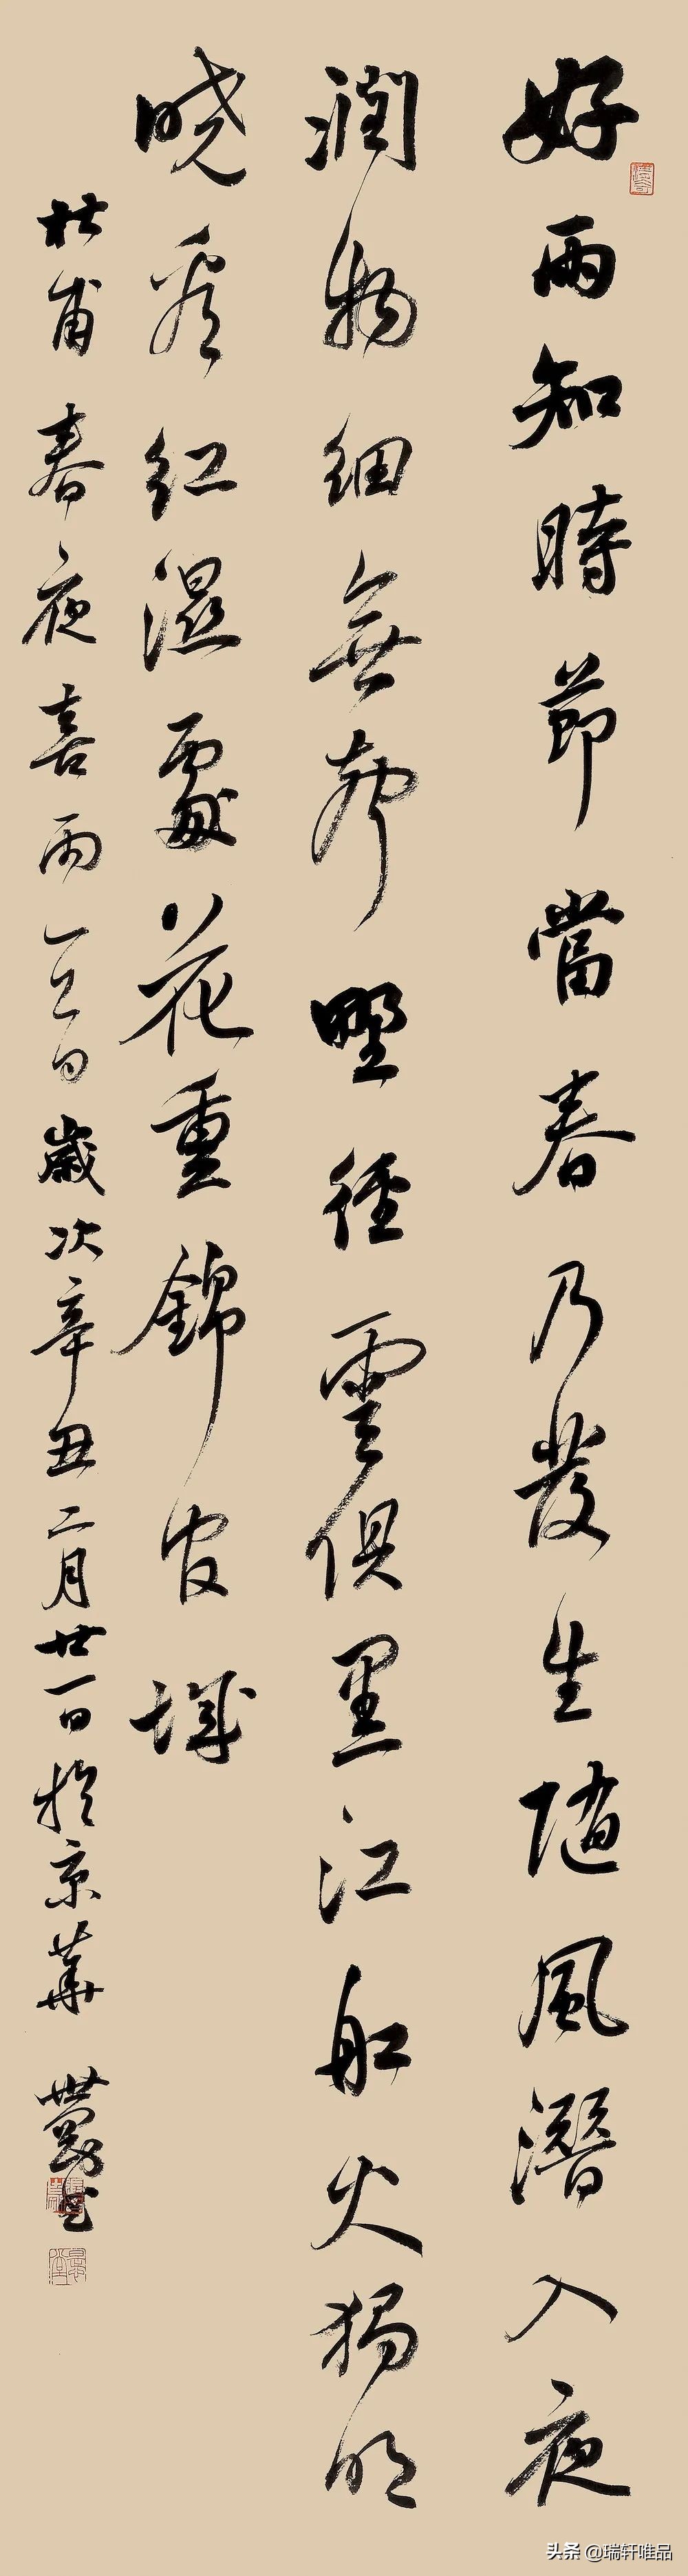 好雨知時節當春乃發生隨風潛入夜
潤物細無聲野徑雲俱黑江船火獨明
曉看紅濕處花重錦官城
杜甫春夜喜雨一首歲次辛丑二月廿一日於京華
头条 @瑞轩唯品